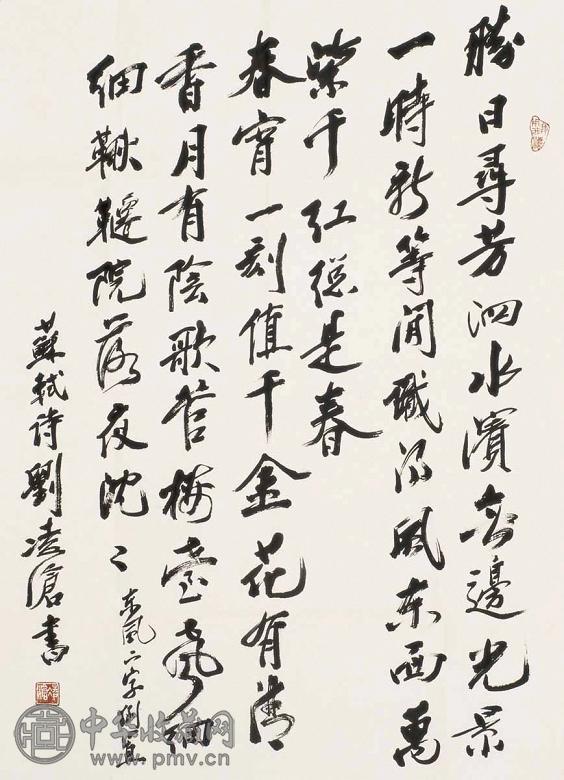 勝日尋芳泗水濱無邊光景
一時新等閒識得風东面萬
紫千红總是春
春宵一刻值千金花有清
香月有陰歌管樓臺聲細
细鞦韆院落夜沈〻
东風二字倒置
蘇軾诗劉凌滄書
中华收藏网
www.pmv.cn